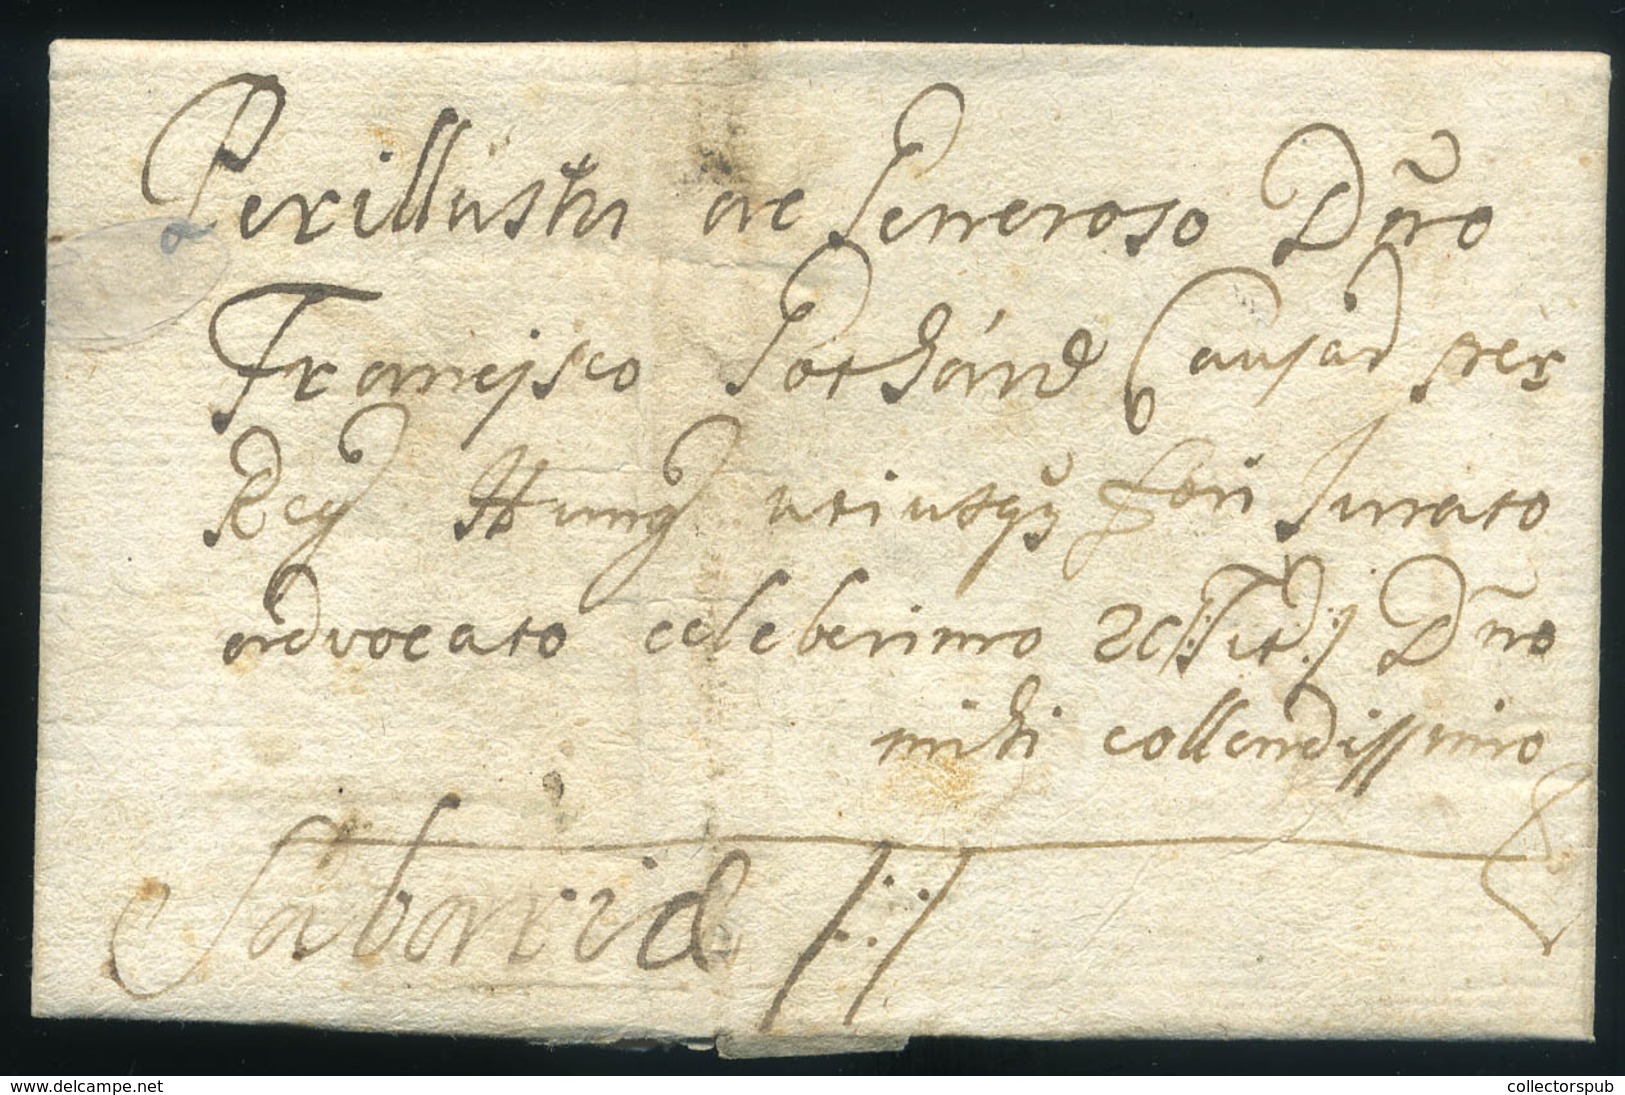 Perillustri ac Generoso Dño
Francisco Potkánÿ Causar per
Reg Hung utriusqz fori Jurato
advocato celeberimo &c /:Tit:/ Dño
mihi collendissimo
Sabariæ /:/
www.delcampe.net
collectorspub